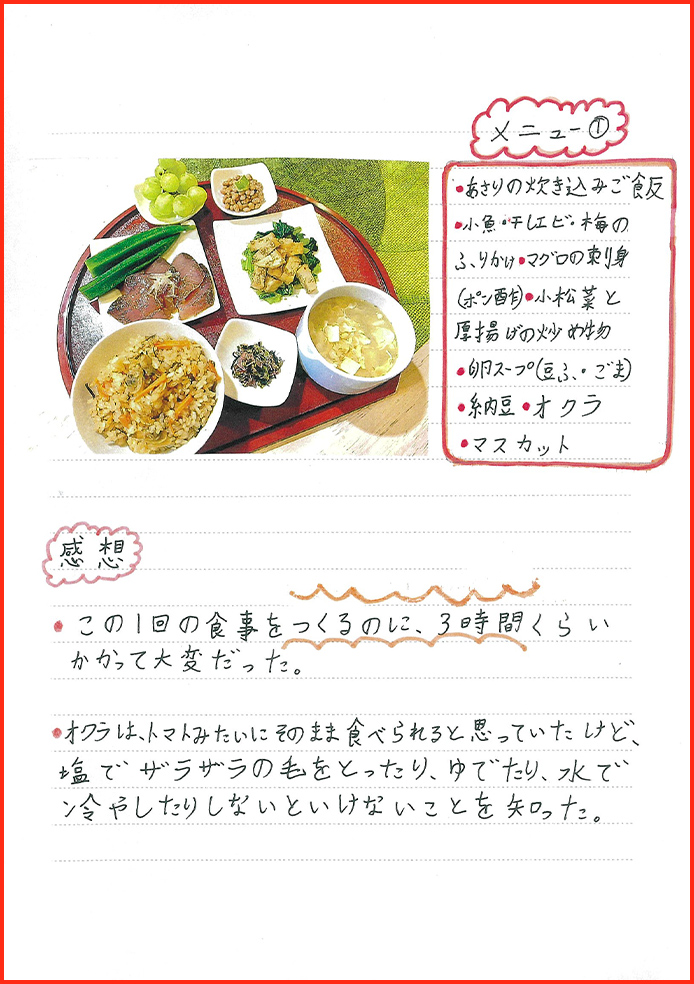 メニュー①
•あさりの炊き込みご飯
•小魚・干しエビ・梅の
ふりかけ•マグロの刺身
(ポン酢)•小松菜と
厚揚げの炒め物
•卵スープ(豆ふ・ごま)
•納豆•オクラ
•マスカット
感想
•この1回の食事をつくるのに、3時間くらい
かかって大変だった。
•オクラは、トマトみたいにそのまま食べられると思っていたけど、
塩でザラザラの毛をとったり、ゆでたり、水で
冷やしたりしないといけないことを知った。